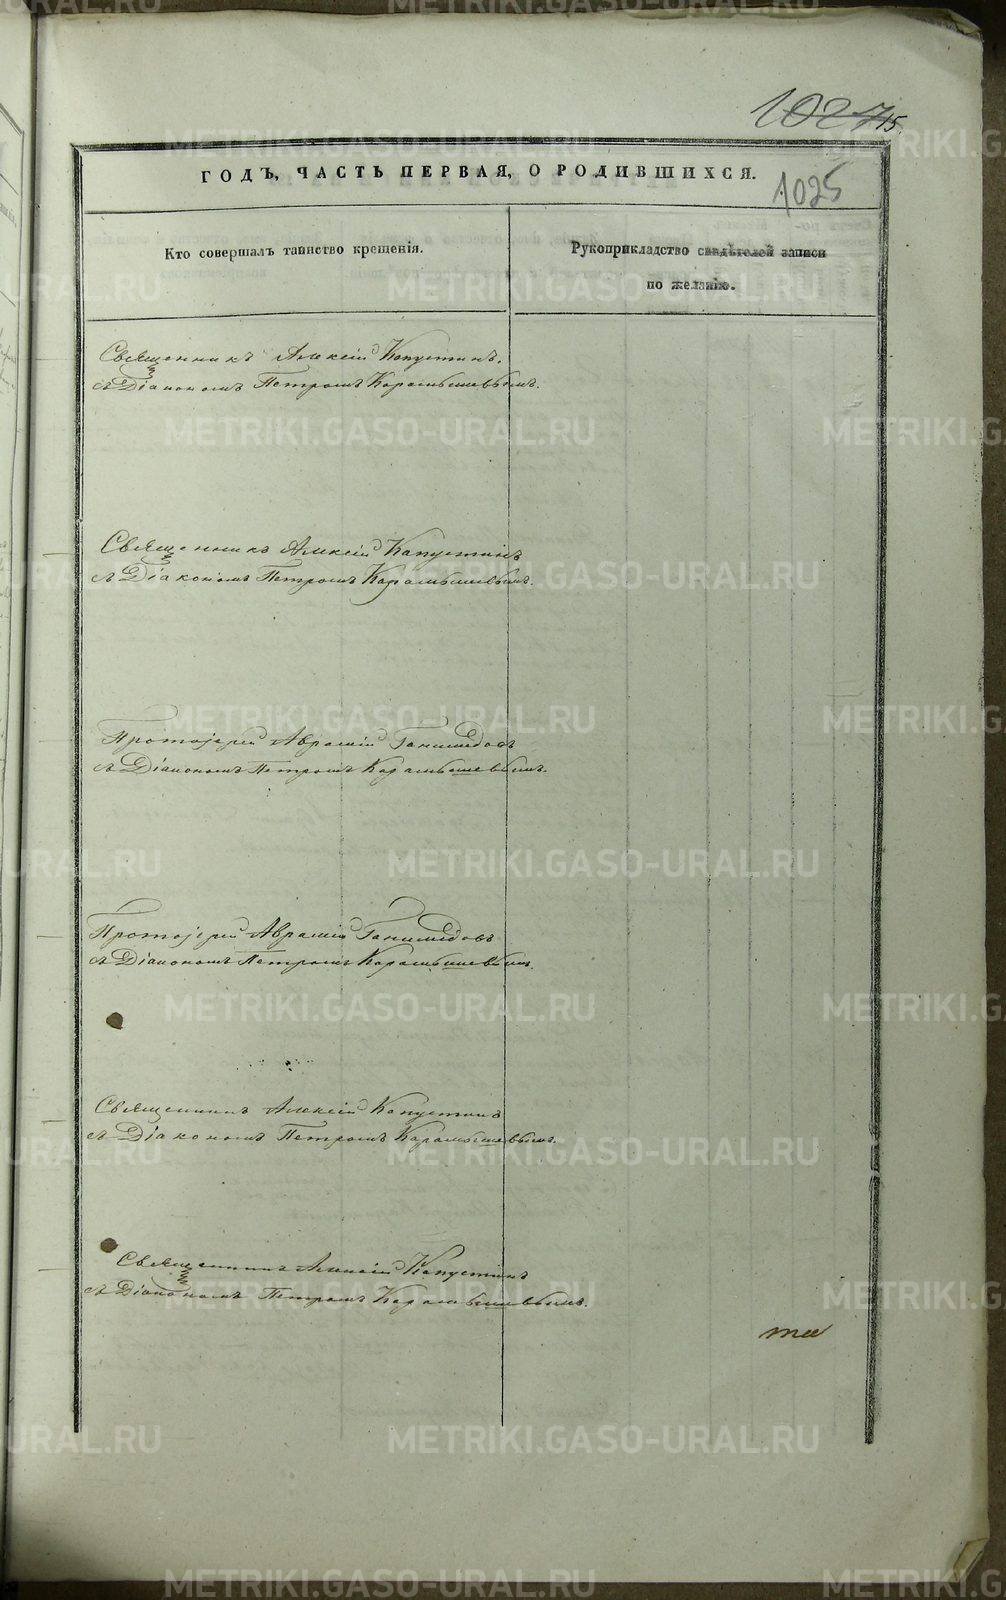 1027 15.
ГОДЪ, ЧАСТЬ ПЕРВАЯ, О РОДИВШИХСЯ.
1025
Кто совершалъ таинство крещенія.
Рукоприкладство свидѣтелей записи
по желанію.
Священникъ Алексій Капустинъ.
съ Діакономъ Петромъ Карамышевымъ.
Священникъ Алексій Капустинъ
съ Діакономъ Петромъ Карамышевымъ.
Протоіерей Аврамій Ганимедовъ
съ Діакономъ Петромъ Карамышевымъ.
Протоіерей Аврамій Ганимедовъ
съ Діакономъ Петромъ Карамышевымъ.
Священникъ Алексій Капустинъ
съ Діакономъ Петромъ Карамышевымъ.
Священникъ Алексій Капустинъ
съ Діакономъ Петромъ Карамышевымъ.
METRIKI.GASO-URAL.RU